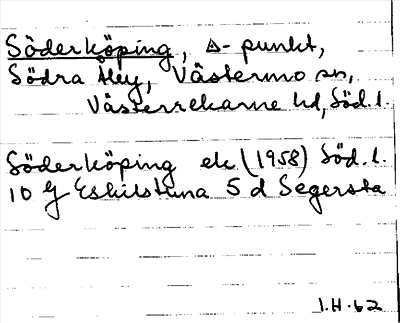 Söderköping, △-punkt,
Södra Åby, Västermo sn,
Västerrekarne hd, Söd. l.
Söderköping ek (1958) Söd. l.
10 G Eskilstuna 5 d Segersta
I.H.62